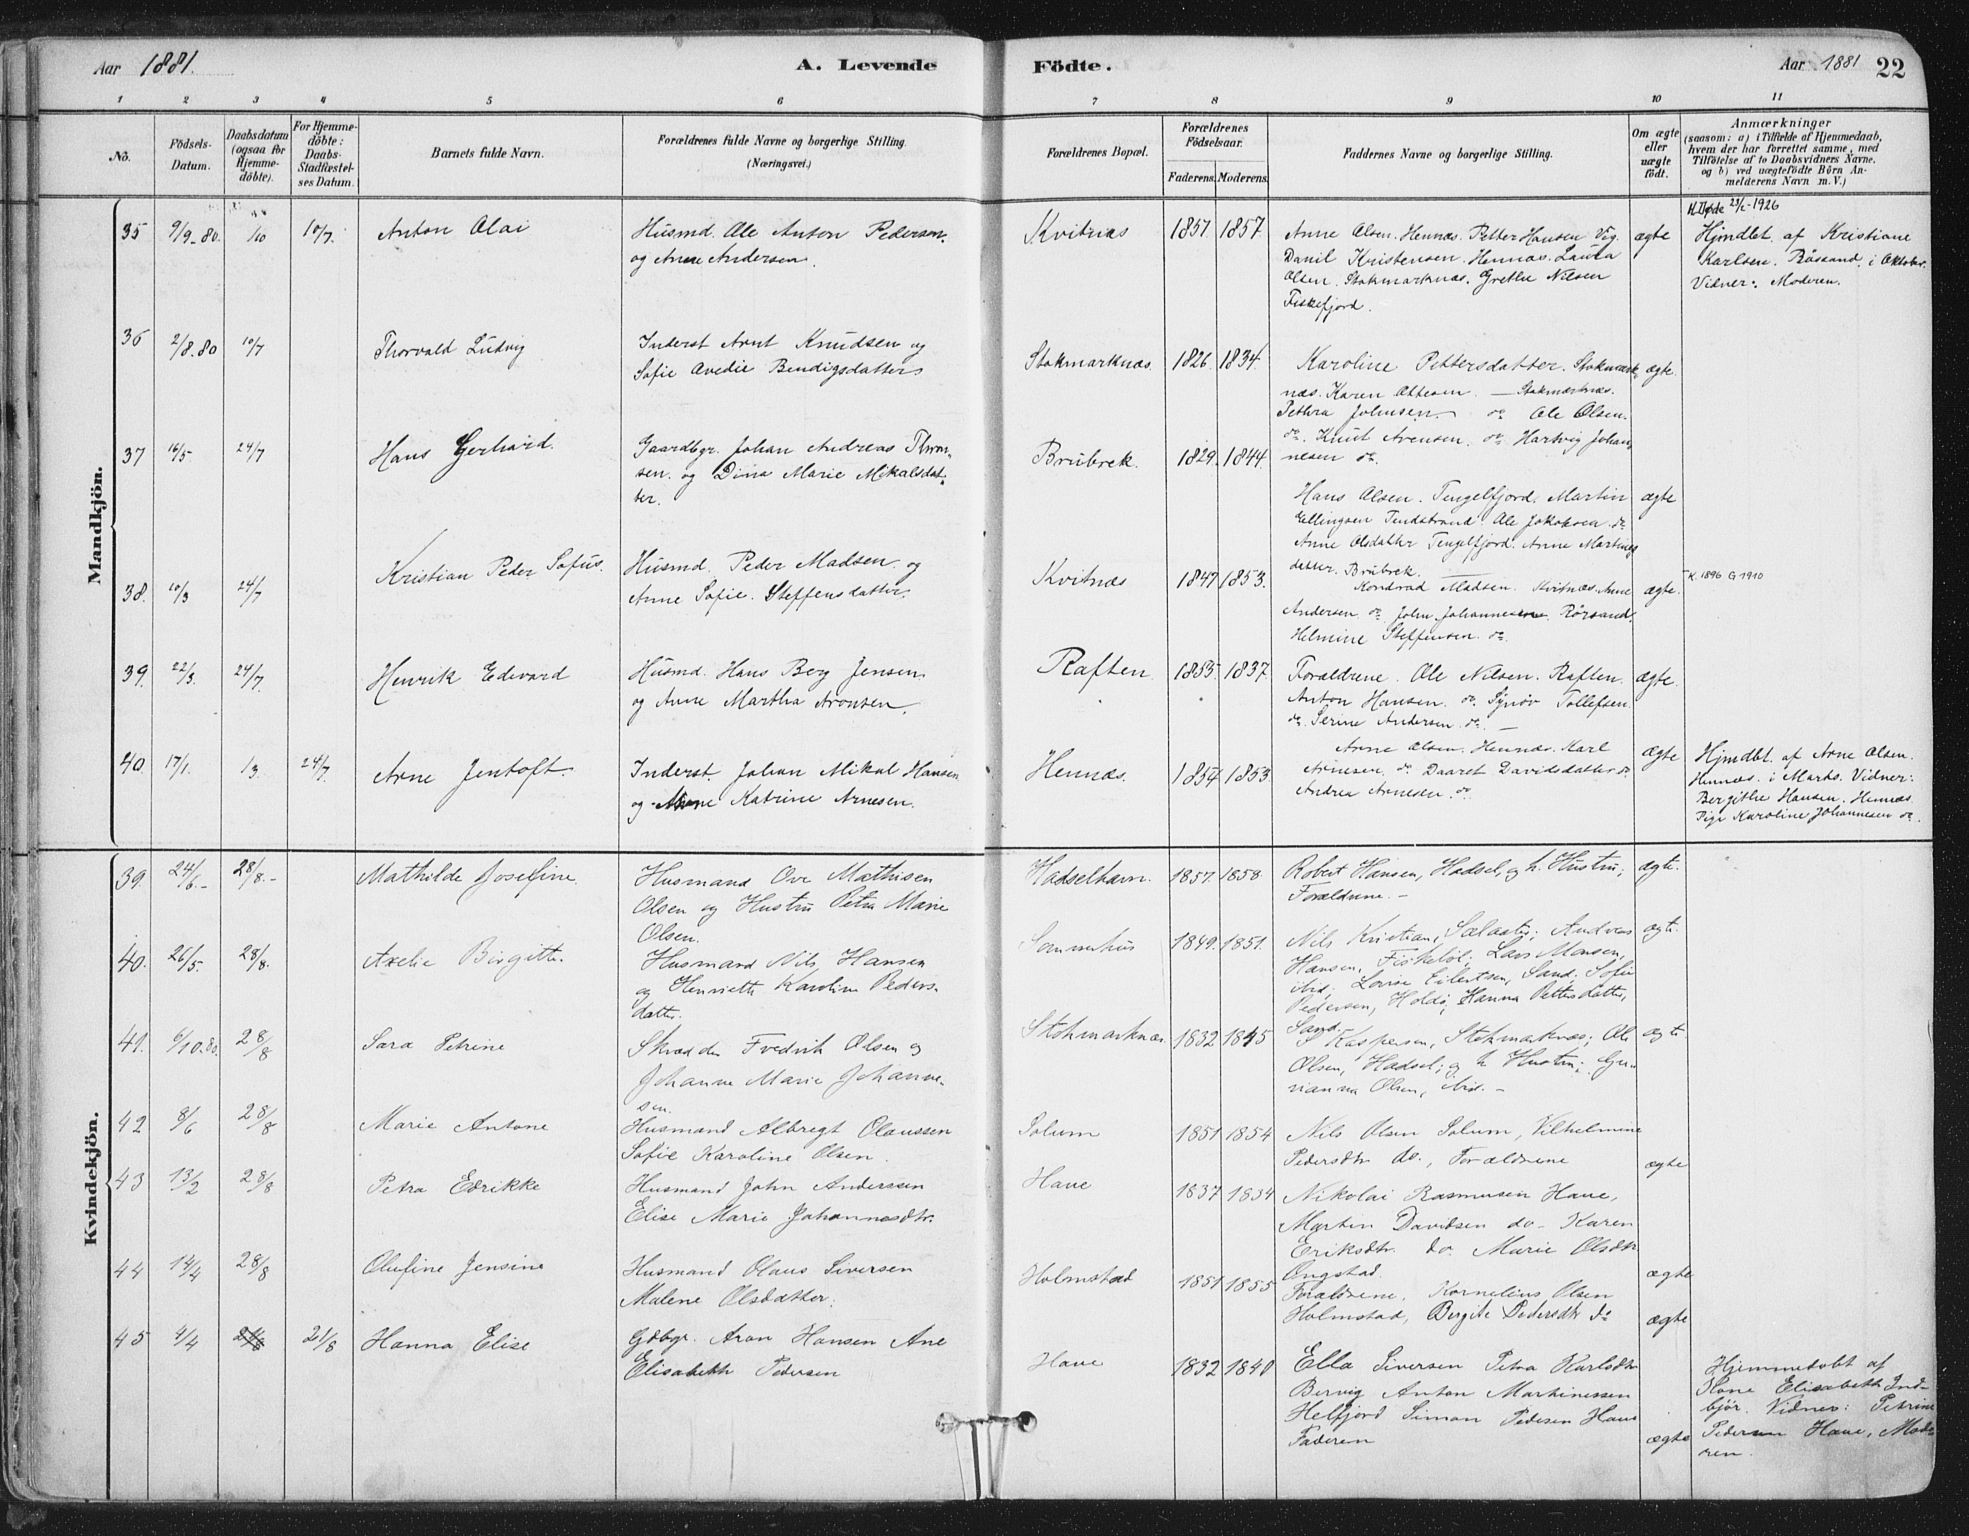 Aar 1881. A. Levende Födte. Aar 1881 22
1 2 3 4 5 6 7 8 9 10 11
No. Födsels-Datum. Daabsdatum (ogsaa for Hjemme-döbte). For Hjemme-döbte: Daabs-Stadfæstel-ses Datum. Barnets fulde Navn. Forældrenes fulde Navne og borgerlige Stilling. (Næringsvei.) Forældrenes Bopæl. Forældrenes Födselsaar. Faderens. Moderens. Faddernes Navne og borgerlige Stilling. Om ægte eller uægte födt. Anmærkninger (saasom: a) i Tilfælde af Hjemmedaab, hvem der har forrettet samme, med Tilföielse af to Daabsvidners Navne, og b) ved uægtefödte Börn An-melderens Navn m. V.)
Mandkjön.
35 9/9-80 /10 10/7 Anton Olai
Husmd. Ole Anton Pedersen.
og Anne Andersen.
Kvitnæs 1857. 1857.
Anne Olsen. Hennæs. Petter Hansen Vig.
Danil Kristensen. Hennæs. Laura
Olsen. Stokmarknæs. Grethe Nilsen
Fiskefjord.
ægte
23/2-1926
Hjmdbt. af Kristiane
Karlsen. Rössand. i Oktober.
Vidner: Moderen.
36 2/8.80 10/7 Thorvald Ludvig
Inderst Arnt Knudsen og
Sofie Avedie Bendigsdatter
Stokmarknæs. 1826. 1834.
Karoline Pettersdatter. Stokmark-
næs. Karen Ottesen. — Stokmarknæs.
Pethra Johnsen. do Ole Olsen.
do. Knut Arensen. do Hartvig Johan,
nesen do.
ægte.
37 16/5. 24/7 Hans Gerhard.
Gaardbgr. Johan Andreas Thom-
sen. og Dina Marie Mikalsdat-
ter.
Brubrek. 1829. 1844.
Hans Olsen. Tengelfjord. Martin
Ellingsen Tendstrand. Ole Jakobsen. do
Anne Olsdatter Tengelfjord. Anne Martines
datter. Brubrek.
ægte
38. 10/3 24/7 Kristian Peder Sofus.
Husmd. Peder Madsen. og
Anne Sofie. Steffensdatter.
Kvitnæs 1847 1853.
Kondrad Madsen. Kvitnæs. Anne
Andersen. do John Johannesen. Rörsand.
Helmine Steffensen. do
ægte.
K. 1896 G 1910
39. 22/3. 24/7. Henrik Edvard
Husmd. Hans Berg Jensen
og Anne Martha Aronsen.
Raften. 1853. 1837.
Foraldrene. Ole Nilsen. Raften.
Anton Hansen. do Synöv Tollefsen.
do. Serine Andersen. do —
ægte.
40. 17/1. /3. 24/7. Arne Jentoft.
Inderst. Johan Mikal Hansen
og Anne Katrine Arnesen.
Hennæs. 1854. 1853.
Arne Olsen. Hennæs. Karl
Arnesen. do Daaret Davidsdatter do
Andrea Arnesen. do
ægte
Hjmdbt. af Arne Olsen.
Hennæs. i Marts. Vidner:
Bergithe Hansen. Hennæs.
Pige Karoline Johannesen do.
Kvindekjön.
39. 24/6.- 28/8.- Mathilde Josefine.
Husmand Ove Mathisen
Olsen og Hustru Petra Marie
Olsen.
Hadselhavn. 1857. 1858
Robert Hansen, Hadsel, og h. Hustru;
Forældrene. -
ægte.
40. 26/5. 28/8. Axelie Birgitte.
Husmand Nils Hansen
og Henriette Karoline Peders-
datter.
Sommerhus 1849. 1851.
Nils Kristian, ; Andreas
Hansen, Fiskeböl; Lars Monsen,
ibid; Lovise Eilertsen, Sand; Sofie
Pedersen, Holdö; Hanna Pettersdatter,
Sand.
ægte.
41. 6/10.80. 28/8 Sara Petrine
Skrædder Fredrik Olsen og
Johanne Marie Johanne-
sen.
Stokmarknæs 1832 1845
S Kaspersen, Stokmarknæs; Ole
Olsen, Hadsel; og h Hustru; Gu-
rianna Olsen, ibid. -
ægte.
42 8/6 28/8 Marie Antone
Husmand Albregt Olaussen
Sofie Karoline Olsen.
Solum 1851 1854
Nils Olsen Solum, Vilhelmine
Pedersdtr do., Forældrene
ægte
43 13/2 28/8 Petra Edrikke
Husmand John Anderssen
Elise Marie Johannesdtr.
Haue 1837 1834
Nikolai Rasmusen Haue,
Martin Davidsen do- Karen
Eriksdtr. do. Marie Olsdtr
Ongstad.
ægte
44 14/4 28/8 Olufine Jensine
Husmand Olaus Siversen
Malene Olsdatter.
Holmstad 1851 1855
Forældrene, Kornelius Olsen
Holmstad, Bergite Pedersdtr do
ægte
45 4/4 21/8 21/8 Hanna Elise
Gdbgr. Aron Hansen Ane
Elisabeth Pedersen
Haue 1832 1840
Ella Siversen Petra Karlsdtr
Bervig Anton Martinessen
Helfjord Simon Pedersen Haue
Faderen
ægte
Hjemmedöbt af
Kone Elisabeth Ind-
björ. Vidner: Petrine
Pedersen Haue, Mode-
ren.